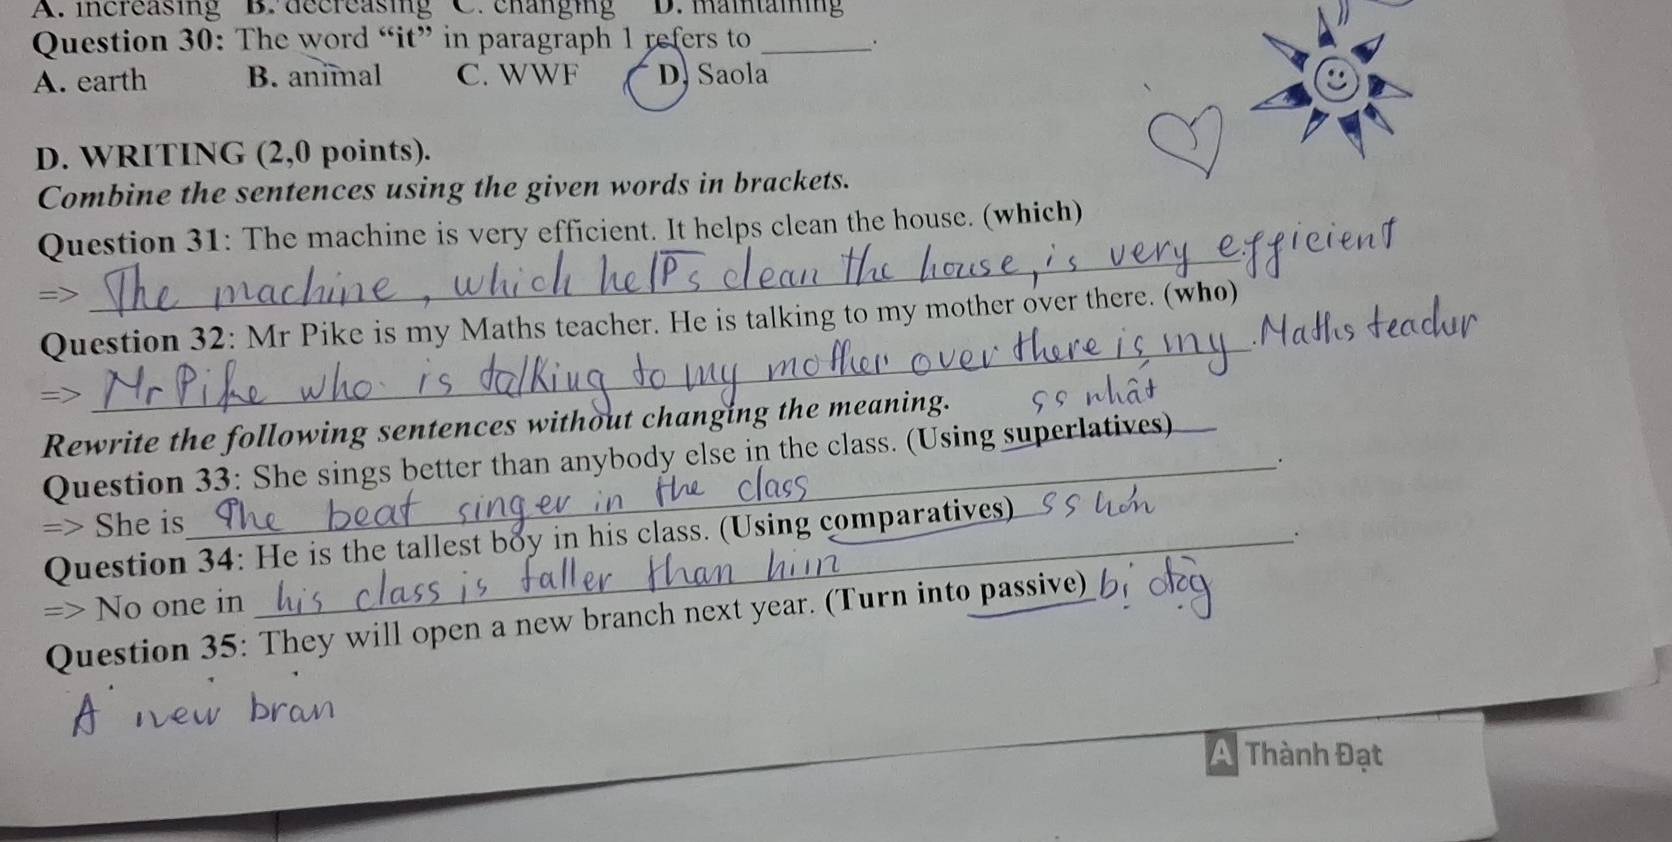 A. increasing B. decreasing C. changing D. maintaining
Question 30: The word “it” in paragraph 1 refers to ________.
A. earth B. animal C. WWF D. Saola
D. WRITING (2,0 points).
Combine the sentences using the given words in brackets.
Question 31: The machine is very efficient. It helps clean the house. (which)
=> The machine, which helps clean the house, is very efficient
Question 32: Mr Pike is my Maths teacher. He is talking to my mother over there. (who)
=> Mr Pike who is talking to my mother over there is my Maths teacher
Rewrite the following sentences without changing the meaning.
ss nhất
Question 33: She sings better than anybody else in the class. (Using superlatives)
=> She is The beat singer in the class.
Question 34: He is the tallest boy in his class. (Using comparatives) ss hơn
=> No one in his class is taller than him.
Question 35: They will open a new branch next year. (Turn into passive) bị động
A new bran
A Thành Đạt